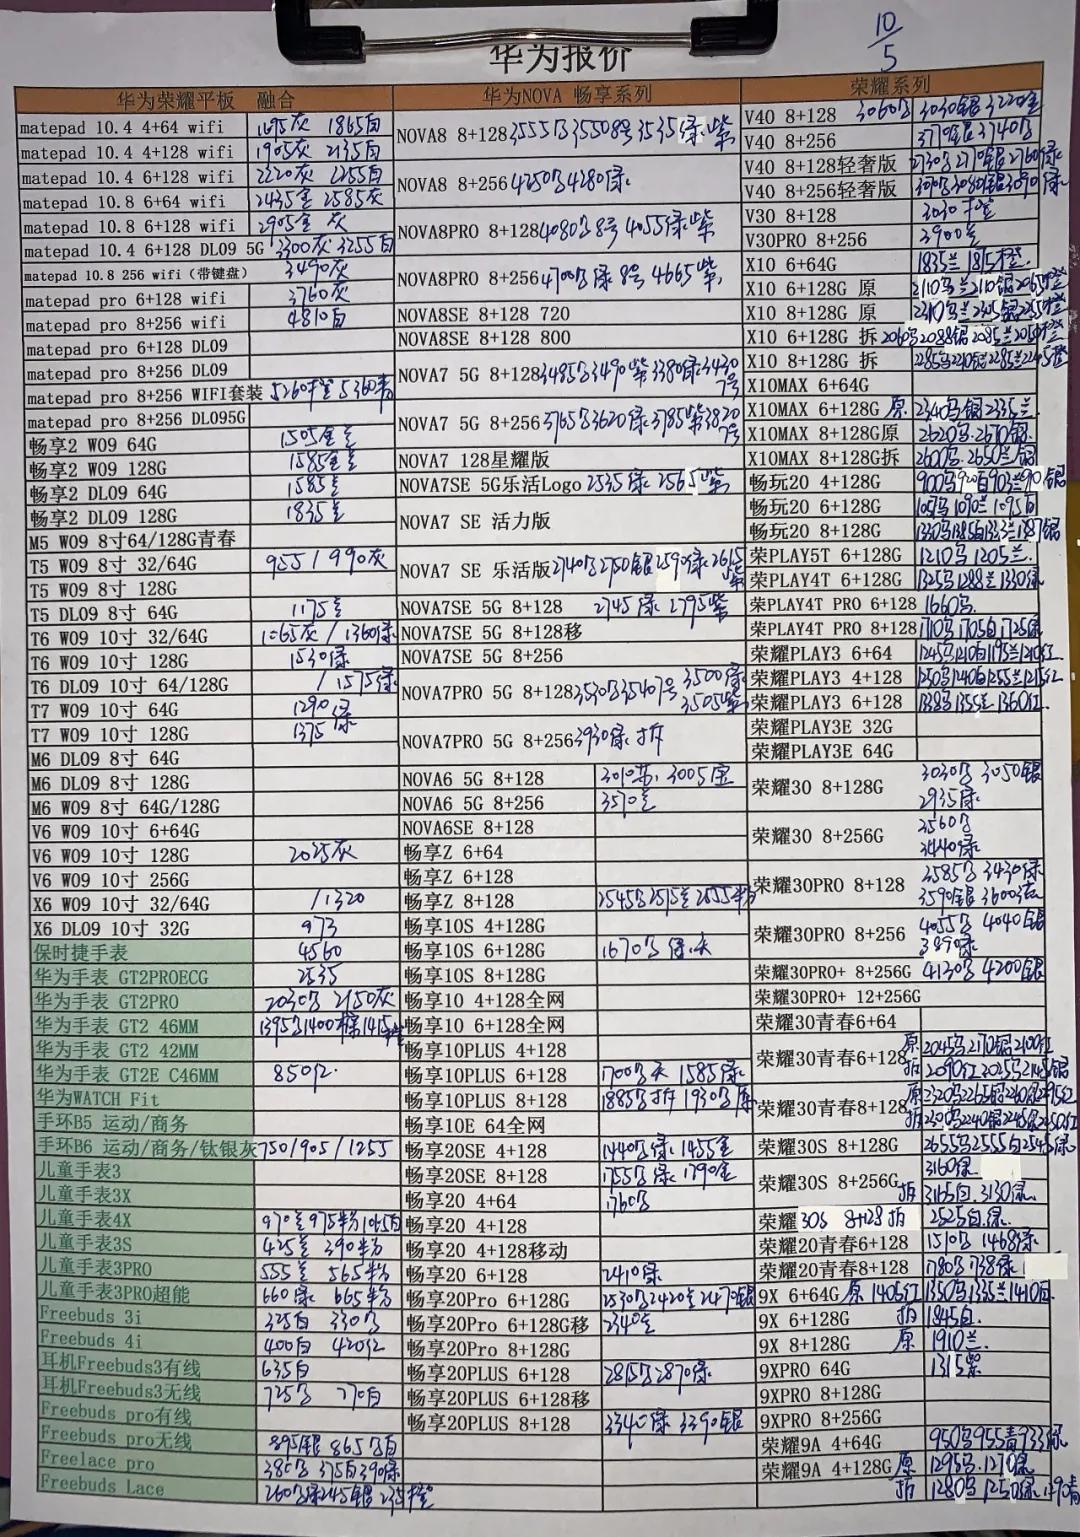 10/5
华为报价
华为荣耀平板 融合
matepad 10.4 4+64 wifi 1695灰 1865白
matepad 10.4 4+128 wifi 1905灰 2135白
matepad 10.4 6+128 wifi 2220灰 2255白
matepad 10.8 6+64 wifi 2435金 2585灰
matepad 10.8 6+128 wifi 2905金 灰
matepad 10.4 6+128 DL09 5G 3300灰 3255白
matepad 10.8 256 wifi (带键盘) 3490灰
matepad pro 6+128 wifi 3760灰
matepad pro 8+256 wifi 4810白
matepad pro 6+128 DL09
matepad pro 8+256 DL09
matepad pro 8+256 WIFI套装 5260橙 5360青
matepad pro 8+256 DL095G
畅享2 W09 64G 1505金兰
畅享2 W09 128G 1585金兰
畅享2 DL09 64G 1585兰
畅享2 DL09 128G 1835兰
M5 W09 8寸64/128G青春
T5 W09 8寸 32/64G 955/990灰
T5 W09 8寸 128G
T5 DL09 8寸 64G 1175兰
T6 W09 10寸 32/64G 1265灰/1360绿
T6 W09 10寸 128G 1530绿
T6 DL09 10寸 64/128G /1575绿
T7 W09 10寸 64G 1290绿
T7 W09 10寸 128G 1375绿
M6 DL09 8寸 64G
M6 DL09 8寸 128G
M6 W09 8寸 64G/128G
V6 W09 10寸 6+64G
V6 W09 10寸 128G 2025灰
V6 W09 10寸 256G
X6 W09 10寸 32/64G /1320
X6 DL09 10寸 32G 973
保时捷手表 4560
华为手表 GT2PROECG 2535
华为手表 GT2PRO 2030 2150灰
华为手表 GT2 46MM 1395 1400棕 1415
华为手表 GT2 42MM
华为手表 GT2E C46MM 850红
华为WATCH Fit
手环B5 运动/商务
手环B6 运动/商务/钛银灰 750/905/1255
儿童手表3
儿童手表3X
儿童手表4X 970兰 975粉 1065白
儿童手表3S 425兰 390粉
儿童手表3PRO 555兰 565粉
儿童手表3PRO超能 660绿 665粉
Freebuds 3i 325白 330
Freebuds 4i 400白 420红
耳机Freebuds3有线 635白
耳机Freebuds3无线 725 770白
Freebuds pro有线
Freebuds pro无线 895银 865 白
Freelace pro 380 375白 390绿
Freebuds Lace 260 绿 245银 235橙
华为NOVA 畅享系列
NOVA8 8+128 3555 3550 8号 3535绿.紫
NOVA8 8+256 4250 4280绿
NOVA8PRO 8+128 4080 8号 4055绿紫
NOVA8PRO 8+256 4700 绿 8号 4665紫
NOVA8SE 8+128 720
NOVA8SE 8+128 800
NOVA7 5G 8+128 3485 3490紫 3380绿 3430 7号
NOVA7 5G 8+256 3765 3620绿 3785紫 3820 7号
NOVA7 128星耀版
NOVA7SE 5G乐活Logo 2535绿 2565紫
NOVA7 SE 活力版
NOVA7 SE 乐活版 2740 2750银 2590绿 2615紫
NOVA7SE 5G 8+128 2745绿 2795紫
NOVA7SE 5G 8+128移
NOVA7SE 5G 8+256
NOVA7PRO 5G 8+128 3530 3540 7号 3500绿 3505紫
NOVA7PRO 5G 8+256 3930绿 拆
NOVA6 5G 8+128 3010 3005
NOVA6 5G 8+256 3570兰
NOVA6SE 8+128
畅享Z 6+64
畅享Z 6+128
畅享Z 8+128 2545 2515兰 2555粉
畅享10S 4+128G
畅享10S 6+128G 1670 绿.灰
畅享10S 8+128G
畅享10 4+128全网
畅享10 6+128全网
畅享10PLUS 4+128
畅享10PLUS 6+128 1700 灰 1585绿
畅享10PLUS 8+128 1885 拆 1930
畅享10E 64全网
畅享20SE 4+128 1440 绿 1455金
畅享20SE 8+128 1755 绿 1790金
畅享20 4+64 1760
畅享20 4+128
畅享20 4+128移动
畅享20 6+128 2410绿
畅享20Pro 6+128G 2530 2420金 2470银
畅享20Pro 6+128G移 2340兰
畅享20Pro 8+128G
畅享20PLUS 6+128 2815 2870绿
畅享20PLUS 6+128移
畅享20PLUS 8+128 3340绿 3390银
荣耀系列
V40 8+128 3060 3030银 3220金
V40 8+256 3710银 3740
V40 8+128轻奢版 2730 2770银 2760绿
V40 8+256轻奢版 3080银 3090绿
V30 8+128 3030橙
V30PRO 8+256 3900兰
X10 6+64G 1835兰 1815橙
X10 6+128G 原 2110 兰 2110银 2065橙
X10 8+128G 原 2310 兰 2305银 2255橙
X10 6+128G 拆 2060 2088银 2085兰 2050橙
X10 8+128G 拆 2285 2210银 2285兰 2245橙
X10MAX 6+64G
X10MAX 6+128G 原 2340 银 2335兰
X10MAX 8+128G原 2620 2670银
X10MAX 8+128G拆 2600 2650兰 银
畅玩20 4+128G 900 920白 903兰 银
畅玩20 6+128G 1090兰 1095白
畅玩20 8+128G
荣PLAY5T 6+128G 1210 1205兰
荣PLAY4T 6+128G 1325 1288兰 1330绿
荣PLAY4T PRO 6+128 1660
荣PLAY4T PRO 8+128 1710 1705白 1725绿
荣耀PLAY3 6+64 1245 1210白 1195兰 1210红
荣耀PLAY3 4+128 1250 1240白 1255兰 1215红
荣耀PLAY3 6+128 1338 1355兰 1360红
荣耀PLAY3E 32G
荣耀PLAY3E 64G
荣耀30 8+128G 3030 3050银
2935绿
荣耀30 8+256G 3560
3440绿
荣耀30PRO 8+128 3585 3430绿
3590银 3600
荣耀30PRO 8+256 4055 4040银
3890绿
荣耀30PRO+ 8+256G 4130 4200银
荣耀30PRO+ 12+256G
荣耀30青春6+64
荣耀30青春6+128 原 2045 2170银 2100红
拆 2090红 2025 2145银
荣耀30青春8+128 原 2320 2265银
拆 2240银
荣耀30S 8+128G 2655 2555白 2545绿
荣耀30S 8+256G 3160绿
拆 3165白.3130绿
荣耀30S 8+128拆 2525白.绿
荣耀20青春6+128 1510 1468绿
荣耀20青春8+128 1780 1738绿
9X 6+64G 原 1405红 1350 1335兰 1410白
9X 6+128G 拆 1845白
9X 8+128G 原 1910兰
9XPRO 64G 1315紫
9XPRO 8+128G
9XPRO 8+256G
荣耀9A 4+64G 950 955青 933绿
荣耀9A 4+128G 原 1295 1270绿
拆 1280 1250绿